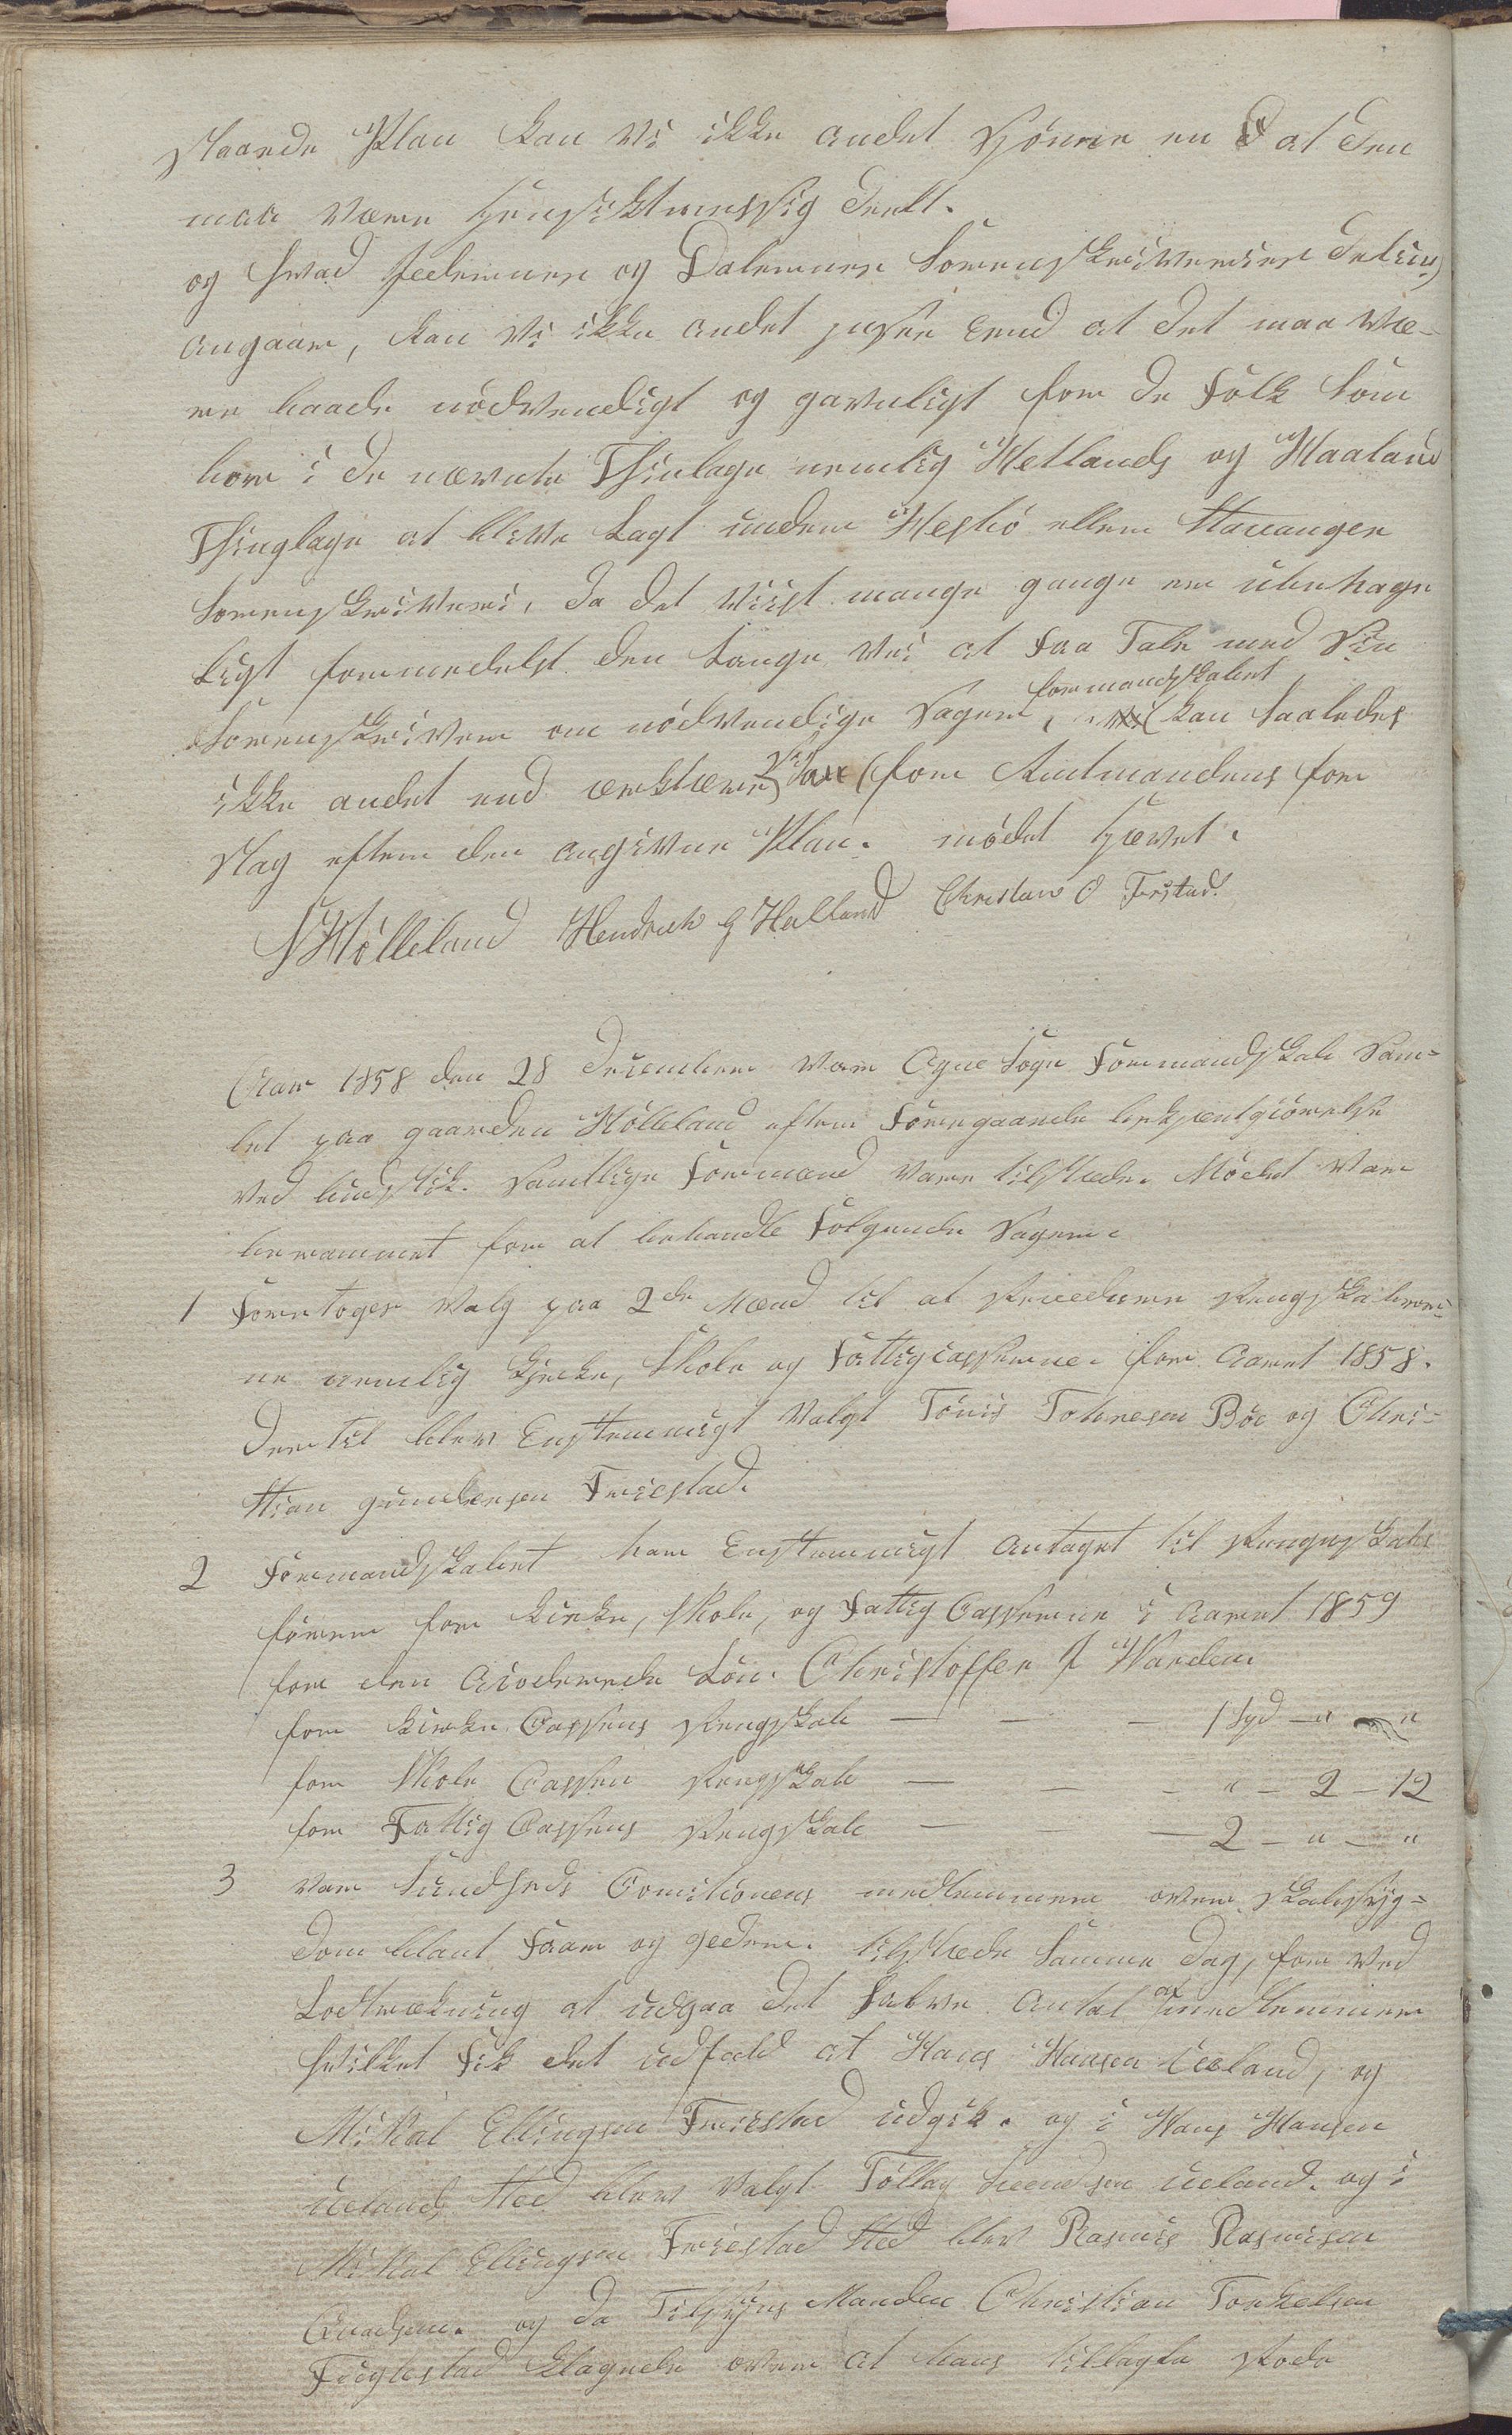 staaende Plan kan vi ikke andet skjønne en d at den
maa være hensiktmessig deelt.
og hvad Jederens og Dalernes Sorenskriverier deling
angaar, kan vi ikke andet indsee end at det maa væ-
re baade nødvendigt og gavnligt for de folk som
bor i de nævnte Thinlage nemlig Hetlands og Haaland
Thinglage at blive lagt under Hesbö eller Stavanger
Sorenskriveri, da det vist mange gange er ubehage
ligt formedelst den lange vei at faa Tale med sin
Sorenskriver om nødvendige sager, formandskabet kan saaledes
ikke andet end erklære sig for Amtmandens for
slag efter den angivne Plan. mødet hævet.
Hölleland Hendrich G Halland Christian O Fristad.
Aar 1858 den 28 December var Ogne Sogn Formandskab sam-
let paa gaarden Hölleland efter Foregaaende bekjentgiørelse
ved budstik. samtlige Formænd vare tilstæde. Mödet var
berammet for at behandle Følgende Sager:
1 Foretoges valg paa 2de Mænd til at Reviedere Rengskaber-
ne nemlig Kirke, Skole og Fattigcasserne for Aaret 1858.
dertil blev Enstemmigt valgt Tönis Tohresen Böe og Chri-
stian gundersen Friestad.
2 Formandskabet har Enstemmigt antaget til Rengnskabs
fører for Kirke, Skole, og Fattig Casserne i Aaret 1859
for den Acoderede Løn. Christoffer J Warden
for Kirke Cassens Rengskab — — — 1 Spd — " — "
for Skole Cassen Rengskab — — — " — 2 — 12
for Fattig Cassens Rengskab — — — 2 — " — "
3 var Sundheds Comitionens medlemmer over skabsyg-
dom blant Faar og geder. tilstæde samme dag, for ved
Lodtrækning at udgaa det halve Antal af medlemmer
hvilket fik det udfald at Hans Hansen Ueland, og
Mikal Ellingsen Friestad udgik. og i Hans Hansen
Ueland Sted blev valgt Tollag Svendsen Ueland. og i
Mikal Ellingsen Friestad Sted blev Rasmus Rasmusen
og da Tilsyns Manden Christian Torkelsen
Fuglestad klagede over at hans tillagte Rode